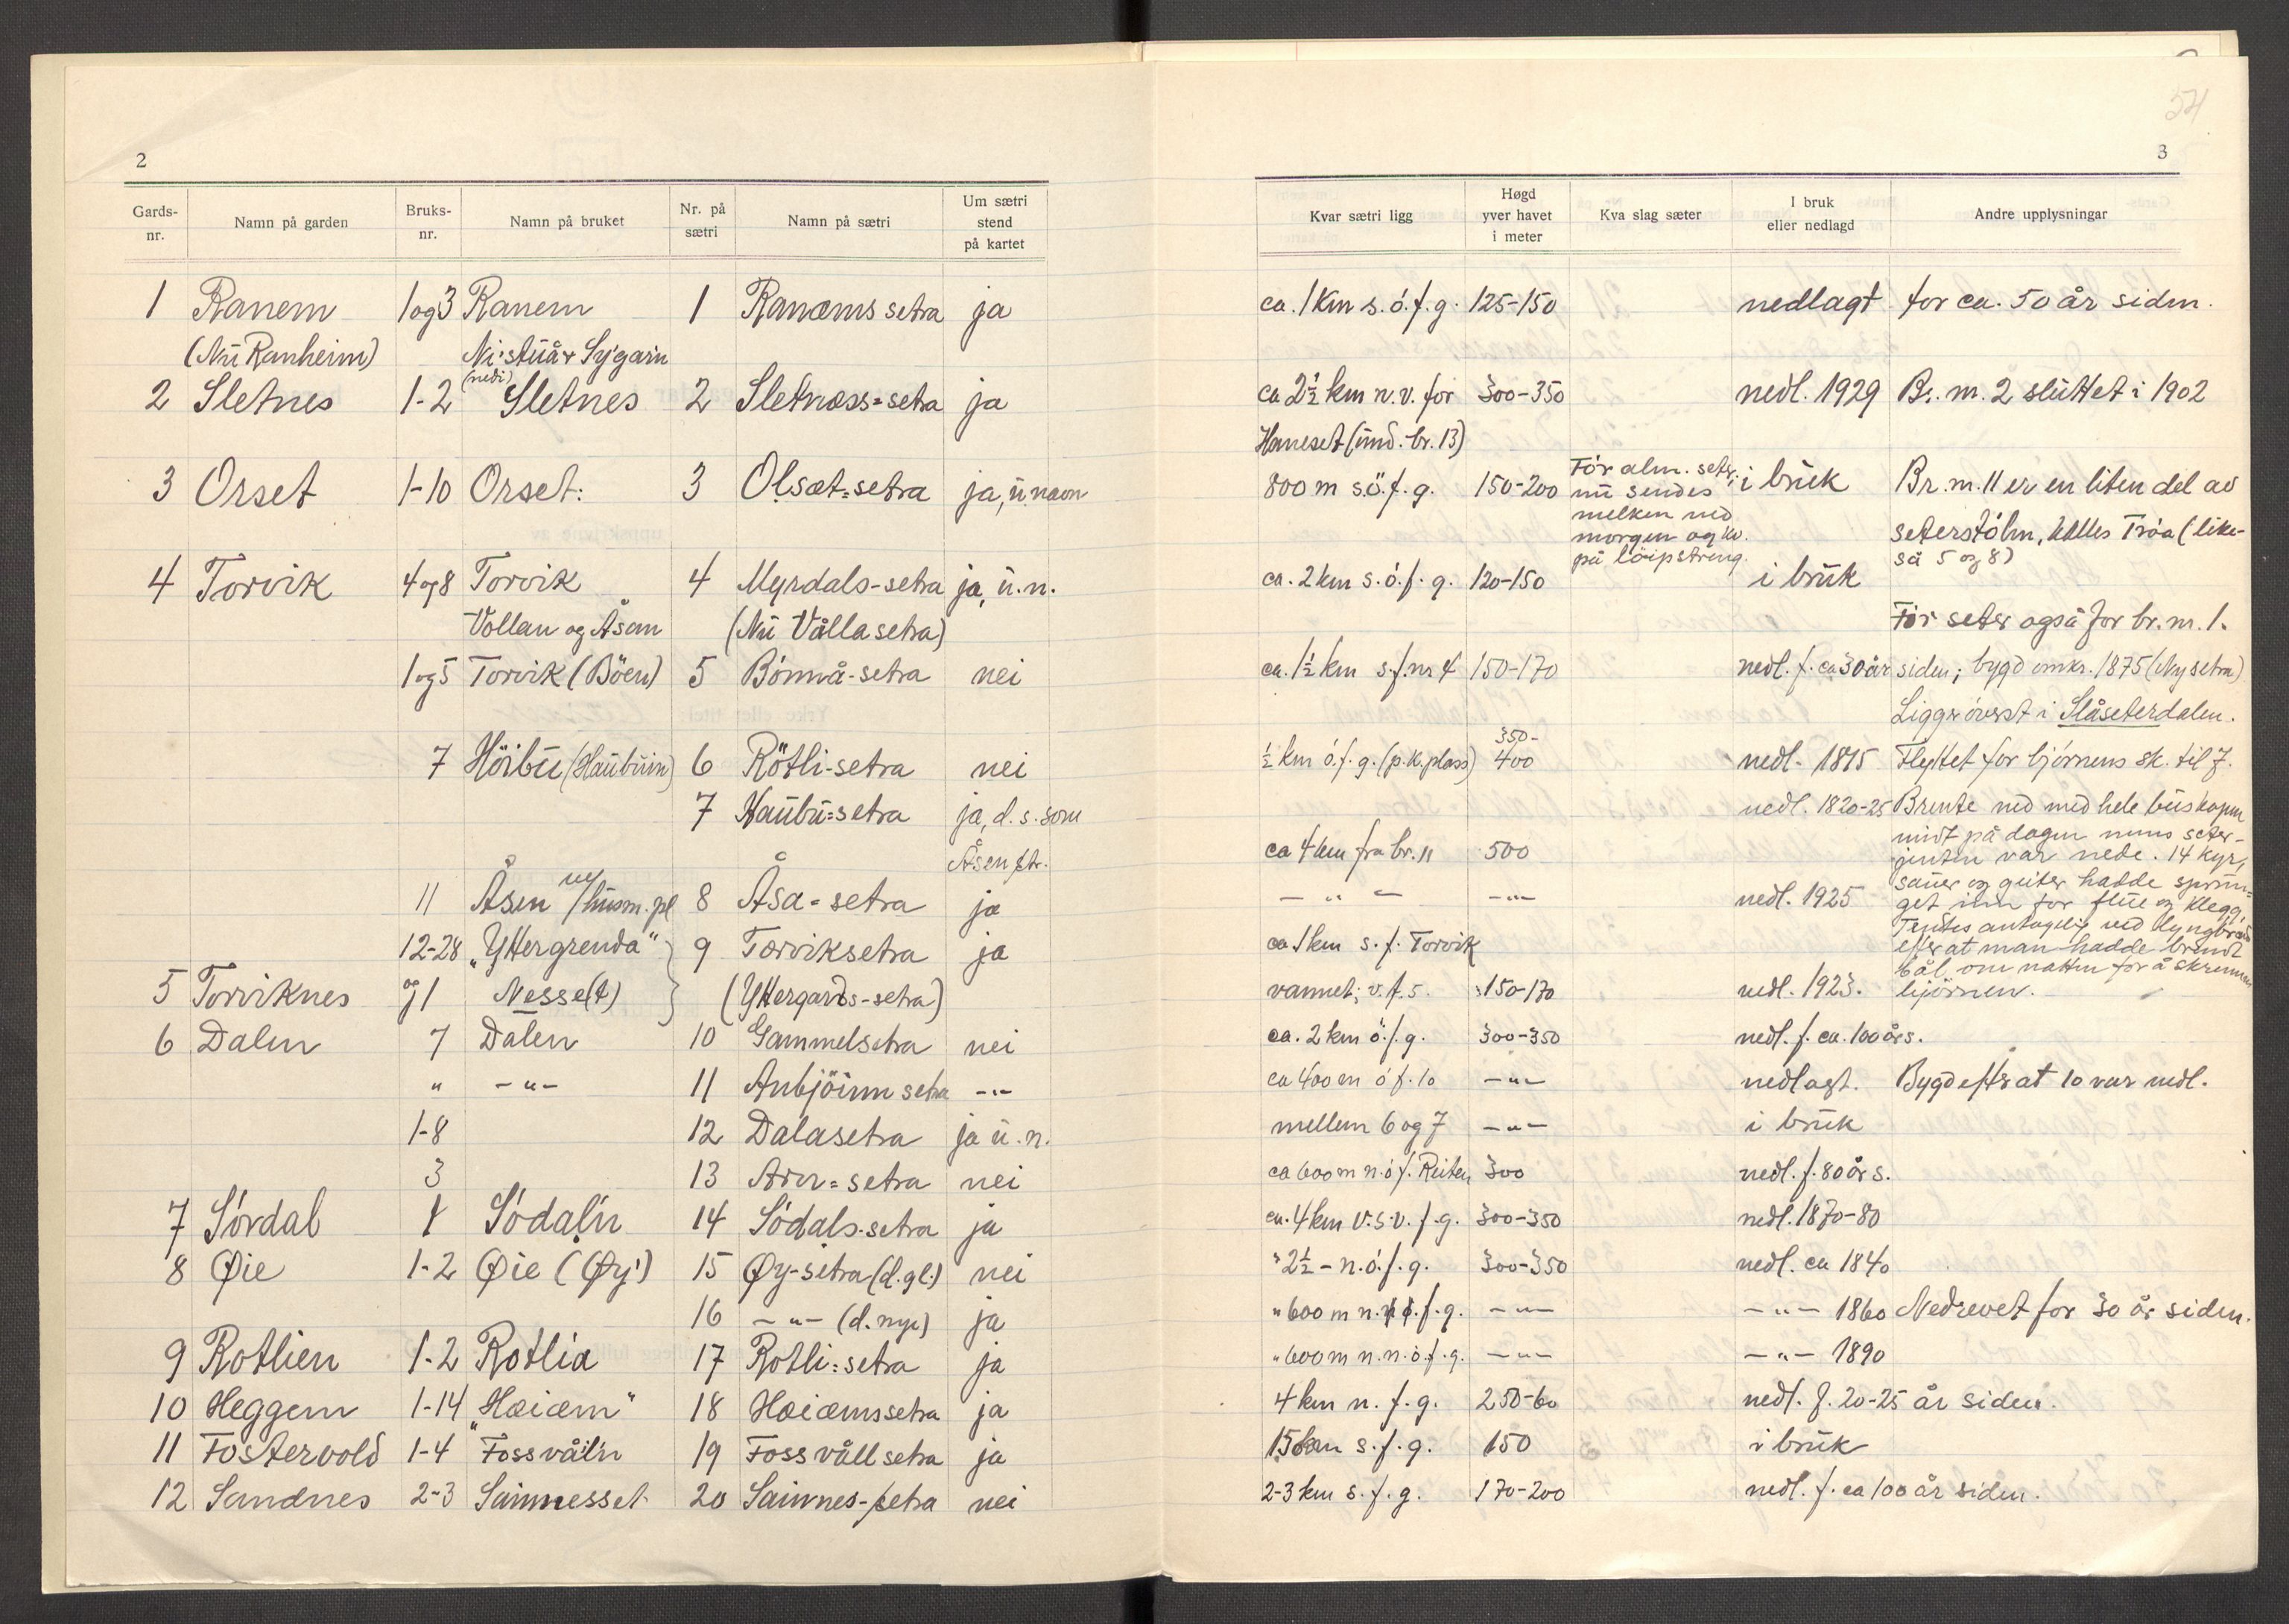 2
Gards-nr. Namn på garden Bruks-nr. Namn på bruket Nr. på sætri Namn på sætri Um sætri stend på kartet
1 Ranem 1og3 Ranem 1 Ranæms setra ja
(Nu Ranheim) Ni'stuå+Sy'garin
(nedi)
2 Sletnes 1-2 Sletnes 2 Sletnæss=setra ja
3 Orset 1-10 Orset: 3 Olsæt=setra ja, u. navn
4 Torvik 4og8 Torvik 4 Myrdals-setra ja, u.n.
Vollan og Åsan (Nu Vållasetra)
1og5 Torvik (Böen) 5 Bömå-setra nei
7 Höibu (Haubuin) 6 Rötli-setra nei
7 Haubu=setra ja, d.s. som
Åsen str.
11 Åsen m/husm.pl 8 Åsa=setra ja
12-28 "Yttergrenda" 9 Torviksetra ja
5 Torviknes og 1 Nesse(t) (Yttergards-setra)
6 Dalen 7 Dalen 10 Gammelsetra nei
" -"- 11 Anbjöinnsetra -"-
1-8 12 Dalasetra ja u.n.
3 13 Arn=setra nei
7 Sördal 1 Södal'n 14 Södals-setra ja
8 Øie 1-2 Øie (Øy') 15 Øy-setra (d.gl.) nei
16 -"- (d. nye) ja
9 Rotlien 1-2 Rotlia 17 Rotli=setra ja
10 Heggem 1-14 "Hæiæm" 18 Hæiæmssetra ja
11 Fostervold 1-4 Fossvål'n 19 Fossvållsetra ja
12 Sandnes 2-3 Sainnesset 20 Sainnes-setra nei
54
3
Kvar sætri ligg Høgd yver havet i meter Kva slag sæter I bruk eller nedlagd Andre upplysningar
ca. 1 km s.ö.f.g. 125-150 nedlagt for ca. 50 år siden.
ca 2½ km n.v. for 300-350 nedl. 1929 Br. nr. 2 sluttet i 1902
Haneset (und. br. 13)
800 m s.ö.f.g. 150-200 För alm. seter; nu sendes melken ned morgen og kv. på löipstreng. i bruk Br.nr. 11 er en liten del av
seterstöln, kalles Tröa (like-
så 5 og 8)
ca. 2 km s.ö.f.g. 120-150 i bruk
För seter også for br. nr. 1.
ca. 1½ km s.f.nr 4 150-170 nedl. f. ca 30 år siden; bygd omkr. 1875 (Nysetra)
Ligger överst i Slåseterdalen.
½ km ö.f.g. (p.k.plass) 350-400 nedl. 1815 Flyttet for björnens sk. til 7.
nedl. 1820-25 Brente ned med hele buskapen
midt på dagen mens seter-
jenten var nede. 14 kyr,
ca 4 km fra br. 11 500
sauer og geiter hadde sprun-
-"- -"- nedl. 1925
get inn for flue og klegg.
Tentes antagelig ved lyngbrand
efter at man hadde brendt
bål om natten for å skremme
björnen.
ca 1 km s.f. Torvik
vannet; v.f. 5. 150-170 nedl. 1923.
ca. 2 km ö.f.g. 300-350 nedl. f. ca. 100 år s.
ca 400 m ö f. 10 -"- nedlagt. Bygd efter at 10 var nedl.
mellem 6 og 7 -"- i bruk
ca 600 m n.ö f. Reiten 300 nedl. f. 80 år s.
ca. 4 km v.s.v. f.g. 300-350 nedl. 1870-80
" 2½ - n.ö.f.g. 300-350 nedl. ca 1840
" 600 m n. ö.f.g. -"- -"- 1860 Nedrevet for 30 år siden.
" 600 m n.n.ö.f.g. -"- -"- 1890
4 km n.f.g. 250-60 nedl. f. 20-25 år siden.
1.5 km s.f.g. 150 i bruk
2-3 km s.f.g. 170-200 nedl. f. ca 100 år siden.